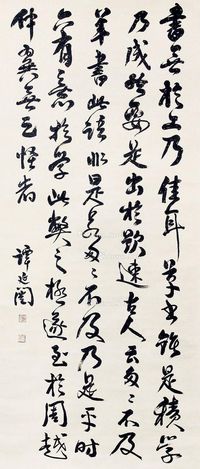 書無於乃佳耳草書雖是積學
乃成然要是出於欲速古人云匆匆不及
草書此語非是若匆匆不及乃是平時
亦有意於學此弊之極遂至於周越
仲翼無足怪者
譚延闓